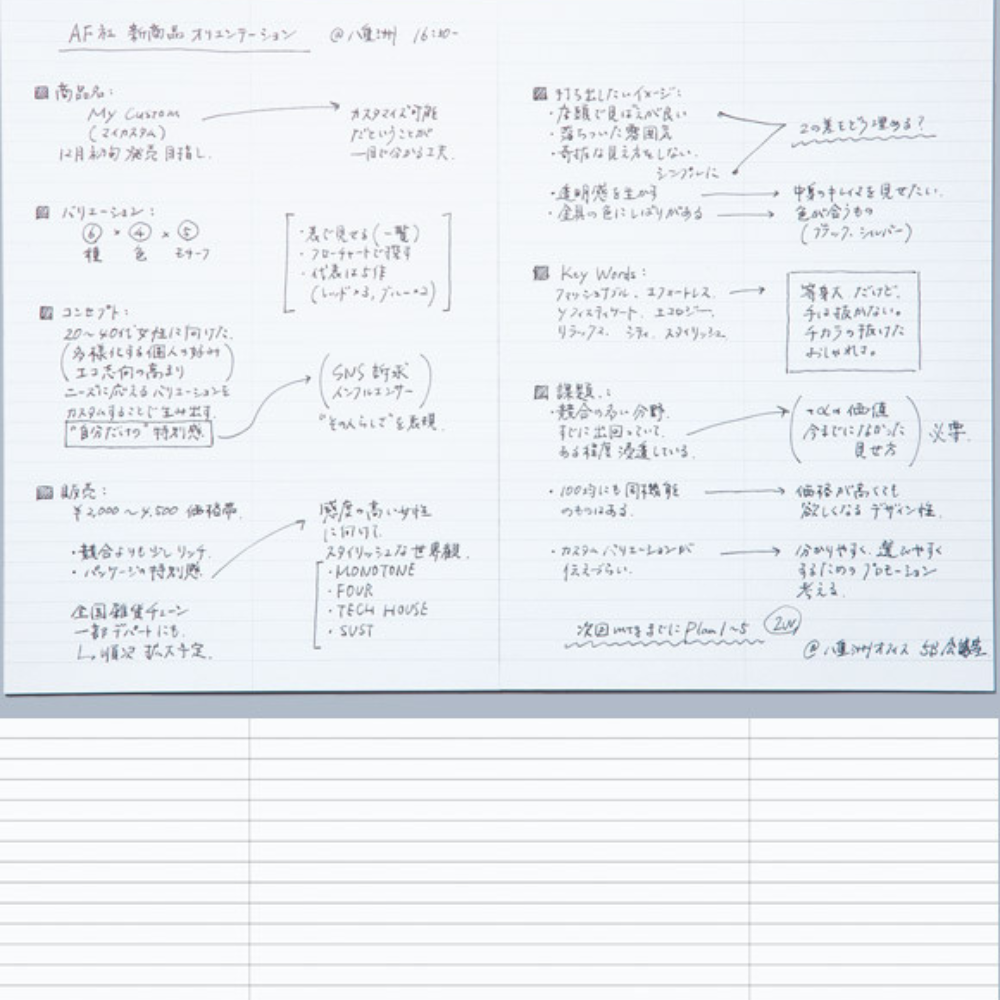 AF社 新商品 オリエンテーション @八重洲 16:30-
商品名:
My Custom
(マイカスタム)
12月初旬 発売目指し.
カスタマイズ可能
だということが
一目で分かる工夫.
バリエーション:
⑥ × ④ × ⑤
種 色 モチーフ
・表で見せる(一覧)
・フローチャートで探す
・代表は5作
(レッド×3, ブルー×2)
コンセプト:
20〜40代女性に向けた.
(多様化する個人の好み
エコ志向の高まり)
ニーズに応えるバリエーションを
カスタムすることで生み出す.
"自分だけの"特別感.
(SNS訴求
インフルエンサー)
"その人らしさ"を表現.
販売:
¥2,000〜4,500 価格帯.
・競合よりも少しリッチ.
・パッケージの特別感.
全国雑貨チェーン
一部デパートにも.
↳順次 拡大予定.
感度の高い女性
に向けて.
スタイリッシュな世界観.
・MONOTONE
・FOUR
・TECH HOUSE
・SUST
打ち出したいイメージ:
・店頭で見ばえが良い
・落ちついた雰囲気
・奇抜な見え方をしない.
シンプルに
2つの差をどう埋める?
・透明感を生かす → 中身のキレイさを見せたい.
・金具の色にしばりがある → 色が合うもの
(ブラック, シルバー)
Key Words:
ファッショナブル. エフォートレス.
ソフィスティケート. エコロジー.
リラックス. シティ. スタイリッシュ.
等身大 だけど.
手は抜かない.
チカラの抜けた
おしゃれさ.
課題:
・競合の多い分野.
すでに出回っていて.
ある程度 浸透している.
(+αの価値
今までになかった
見せ方) 必要.
・100均にも同機能
のものはある.
価格が高くても
欲しくなる デザイン性.
・カスタム バリエーションが
伝えづらい.
分かりやすく. 選びやすく
するためのプロモーション
考える.
次回mtgまでに Plan1〜5
@八重洲オフィス 5B会議室